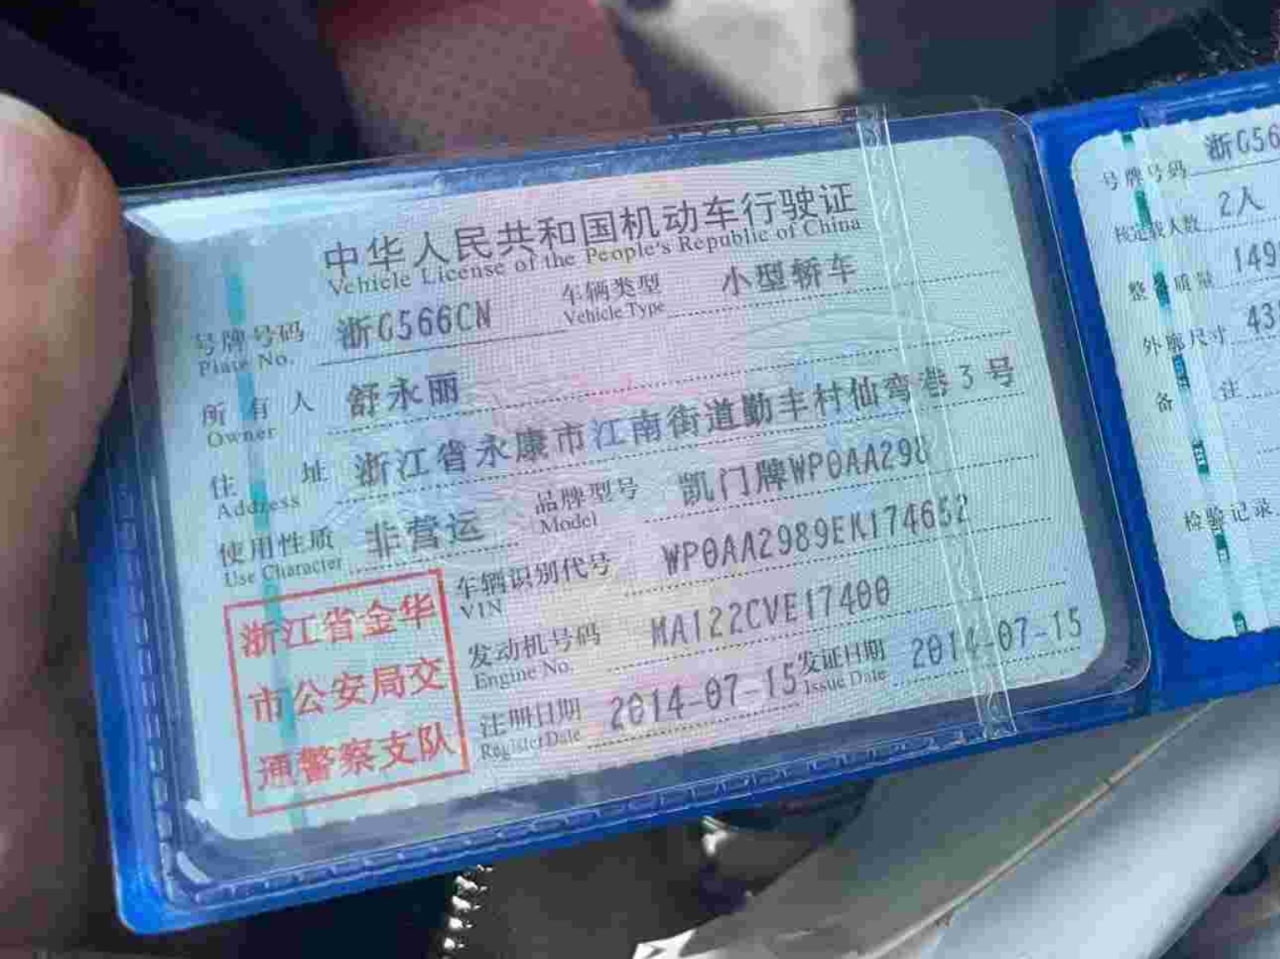 中华人民共和国机动车行驶证
Vehicle License of the People's Republic of China
号牌号码 浙G566CN 车辆类型 小型轿车
Plate No. Vehicle Type
所有人 舒永丽
Owner
住址 浙江省永康市江南街道勤丰村仙弯巷3号
Address
使用性质 非营运 品牌型号 凯门牌WP0AA298
Use Character Model
车辆识别代号 WP0AA2989EK174652
VIN
发动机号码 MA122CVE17400
Engine No.
注册日期 2014-07-15 发证日期 2014-07-15
Register Date Issue Date
浙江省金华
市公安局交
通警察支队
号牌号码 浙G56
核定载人数 2人
整备质量 149
外廓尺寸 43
备注
检验记录